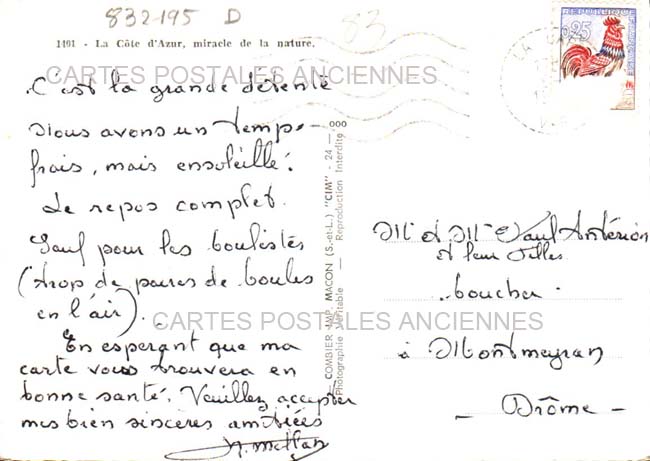 832195 D
83
1491 - La Côte d'Azur, miracle de la nature.
REPUBLIQUE FRANÇAISE
0,25
CARTES POSTALES ANCIENNES
C'est la grande détente
Nous avons un temps
frais, mais ensoleillé.
Le repos complet.
Sauf pour les boulistes
(trop de paires de boules
en l'air).
CARTES POSTALES ANCIENNES
En esperant que ma
carte vous trouvera en
bonne santé. Veuillez accepter
mes bien sincères amitiées
COMBIER IMP. MACON (S.-et-L.) "CIM" - 24 - 000
Photographie Véritable - Reproduction Interdite
Mr et Mme Paul Antérion
et leur filles
boucher
à Montmeyran
- Drôme -